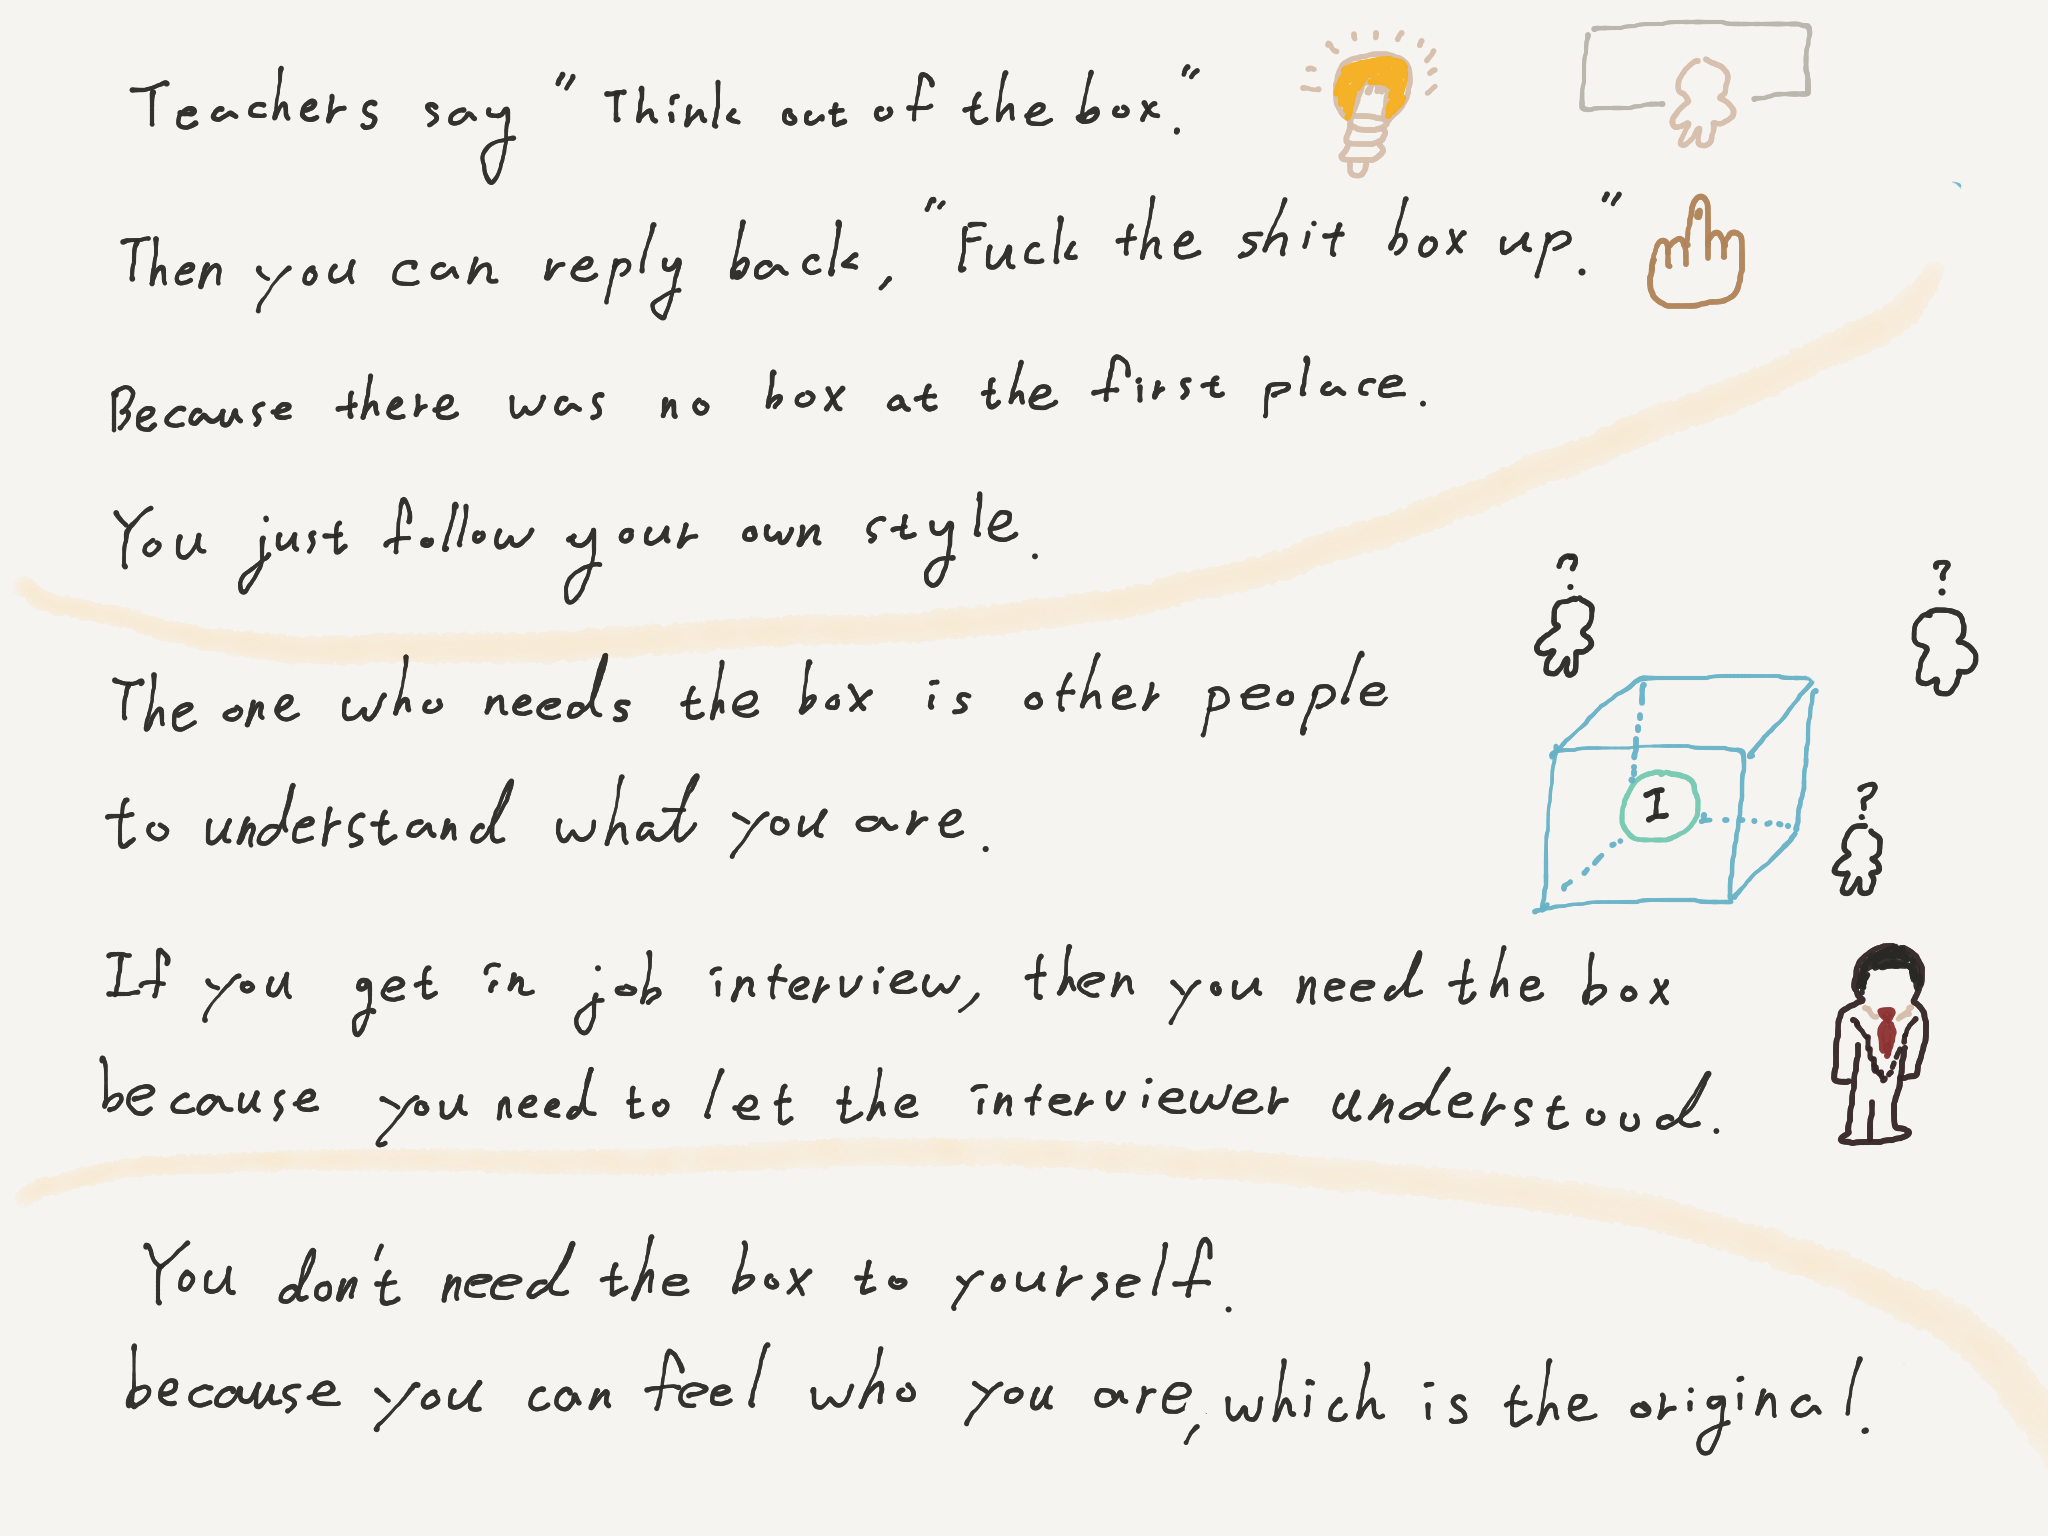 Teachers say "Think out of the box."
Then you can reply back, "Fuck the shit box up."
Because there was no box at the first place.
You just follow your own style.
? ?
The one who needs the box is other people
I
?
to understand what you are.
If you get in job interview, then you need the box
because you need to let the interviewer understood.
You don't need the box to yourself.
because you can feel who you are, which is the original.